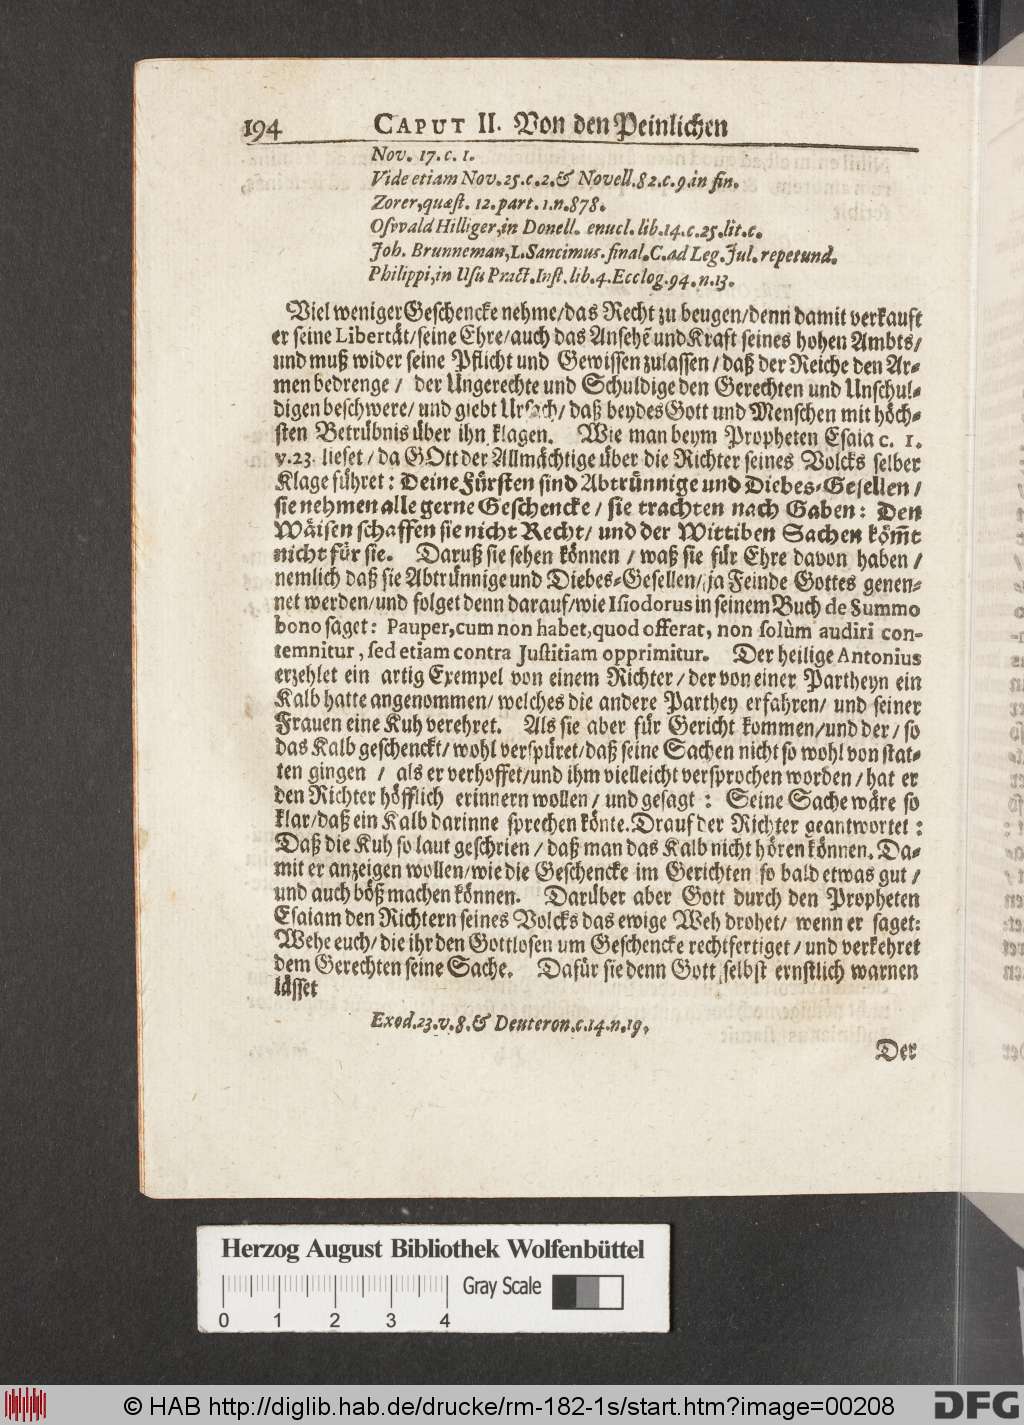 194 CAPUT II. Von den Peinlichen
Nov. 17. c. 1.
Vide etiam Nov. 25. c. 2. & Novell. 82. c. 9. in fin.
Zorer, quæst. 12. part. 1. n. 878.
Osvvald Hilliger, in Donell. enucl. lib. 14. c. 25. lit. c.
Joh. Brunneman, L. Sancimus. final. C. ad Leg. Jul. repetund.
Philippi, in Usu Pract. Inst. lib. 4. Ecclog. 94. n. 13.
Viel weniger Geschencke nehme/ das Recht zu beugen/ denn damit verkauft
er seine Libertät/ seine Ehre/ auch das Ansehẽ und Kraft seines hohen Ambts/
und muß wider seine Pflicht und Gewissen zulassen/ daß der Reiche den Ar-
men bedrenge/ der Ungerechte und Schuldige den Gerechten und Unschul-
digen beschwere/ und giebt Ursach/ daß beydes Gott und Menschen mit höch-
sten Betrübnis über ihn klagen. Wie man beym Propheten Esaia c. 1.
v. 23. lieset/ da GOtt der Allmächtige über die Richter seines Volcks selber
Klage führet: Deine Fürsten sind Abtrünnige und Diebes-Gesellen/
sie nehmen alle gerne Geschencke/ sie trachten nach Gaben: Den
Wäisen schaffen sie nicht Recht/ und der Wittiben Sachen köm̃t
nicht für sie. Daruß sie sehen können/ waß sie für Ehre davon haben/
nemlich daß sie Abtrünnige und Diebes-Gesellen/ ja Feinde Gottes genen-
net werden/ und folget denn darauf/ wie Isiodorus in seinem Buch de Summo
bono saget: Pauper, cum non habet, quod offerat, non solùm audiri con-
temnitur, sed etiam contra Justitiam opprimitur. Der heilige Antonius
erzehlet ein artig Exempel von einem Richter/ der von einer Partheyn ein
Kalb hatte angenommen/ welches die andere Parthey erfahren/ und seiner
Frauen eine Kuh verehret. Als sie aber für Gericht kommen/ und der/ so
das Kalb geschenckt/ wohl verspüret/ daß seine Sachen nicht so wohl von stat-
ten gingen/ als er verhoffet/ und ihm vielleicht versprochen worden/ hat er
den Richter höfflich erinnern wollen/ und gesagt: Seine Sache wäre so
klar/ daß ein Kalb darinne sprechen könte. Drauf der Richter geantwortet:
Daß die Kuh so laut geschrien/ daß man das Kalb nicht hören können. Da-
mit er anzeigen wollen/ wie die Geschencke im Gerichten so bald etwas gut/
und auch böß machen können. Darüber aber Gott durch den Propheten
Esaiam den Richtern seines Volcks das ewige Weh drohet/ wenn er saget:
Wehe euch/ die ihr den Gottlosen um Geschencke rechtfertiget/ und verkehret
dem Gerechten seine Sache. Dafür sie denn Gott selbst ernstlich warnen
lässet
Exod. 23. v. 8. & Deuteron. c. 14. n. 19.
Der
Herzog August Bibliothek Wolfenbüttel
Gray Scale
0 1 2 3 4
© HAB http://diglib.hab.de/drucke/rm-182-1s/start.htm?image=00208
DFG